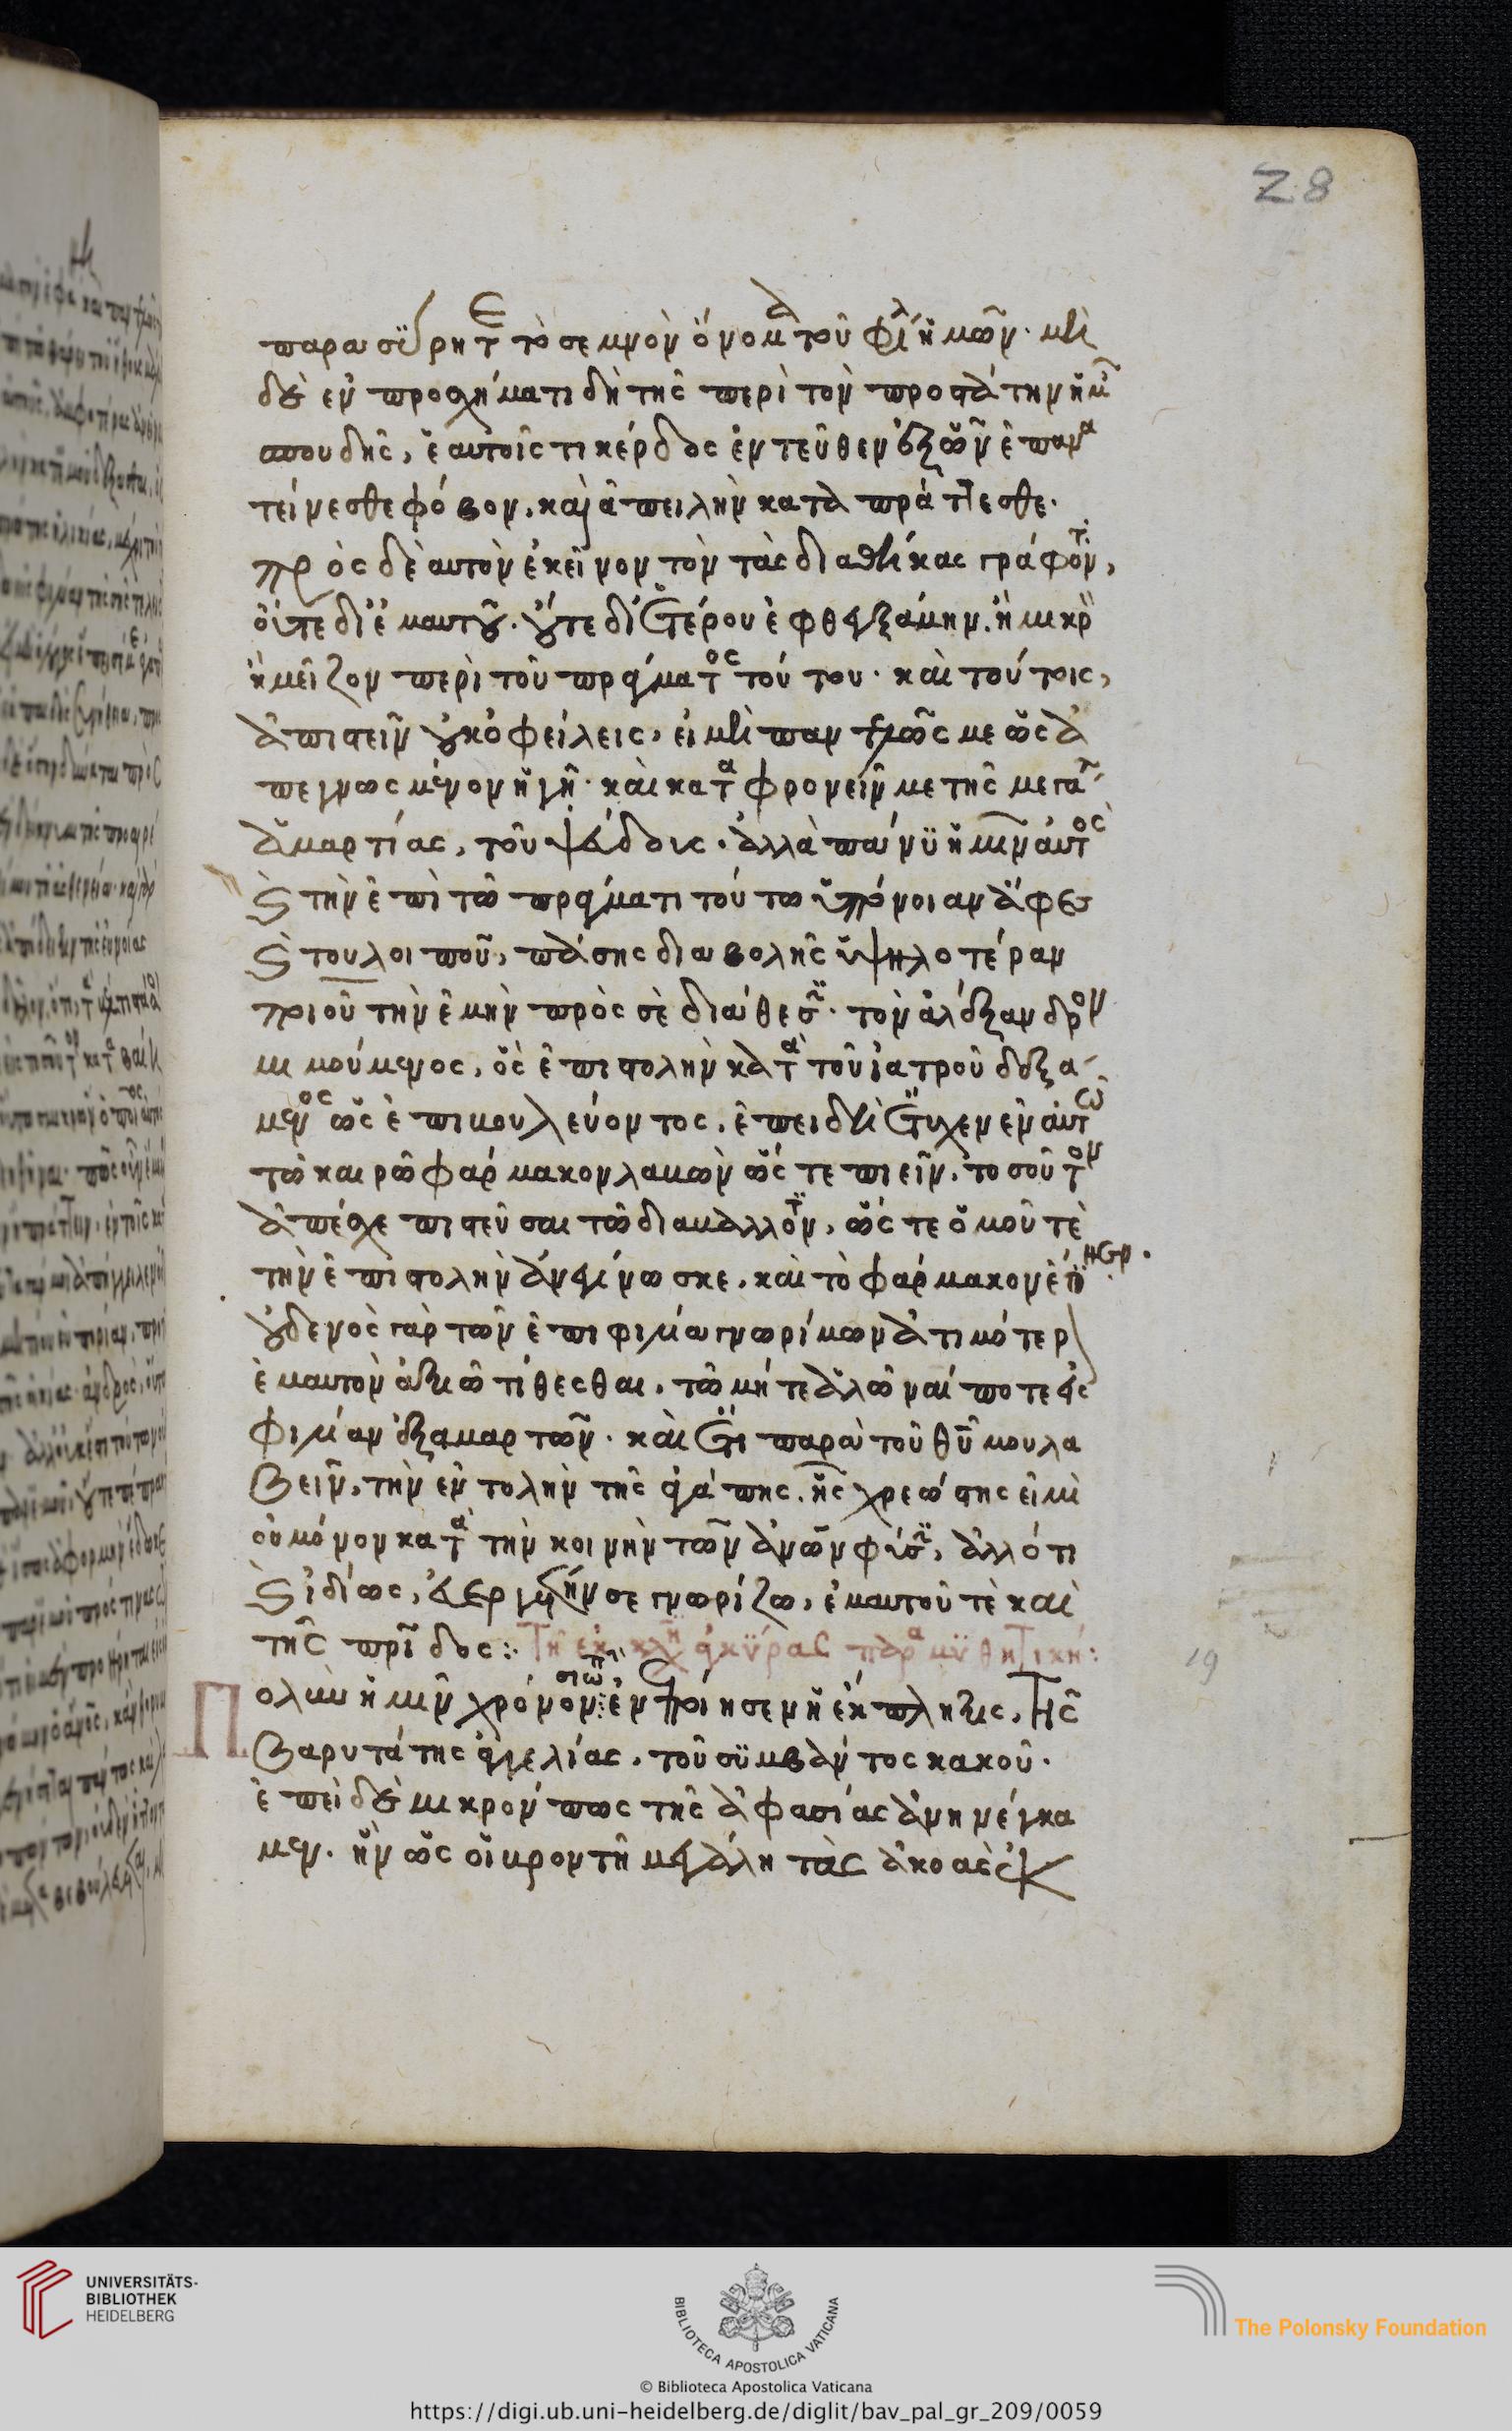 28
παρασύρητε τὸ σεμνὸν ὄνομα τοῦ φίλου ἡμῶν· μὴ
δὲ ἐν προσχήματι δὴ τῆς περὶ τὸν προστάτην ἡμῶν
σπουδῆς, ἑαυτοῖς τι κέρδος ἐντεῦθεν
τείνεσθε φόβον, καὶ ἀπειλὴν καταπράττεσθε.
πρὸς δὲ αὐτὸν ἐκεῖνον τὸν τὰς διαθήκας γράφοντα,
οὔτε δι' ἐμαυτοῦ. οὔτε δι' ἑτέρου ἐφθεγξάμην. ἢ μικρὸν
ἢ μεῖζον περὶ τοῦ πράγματος τούτου. καὶ τούτοις,
ἀπιστεῖν οὐκ ὀφείλεις, εἰ μὴ παντελῶς με ὡς ἀ
πεγνωσμένον ἡγῇ. καὶ καταφρονεῖν με τῆς μεγάλης
ἁμαρτίας, τοῦ ψεύδους. ἀλλὰ πάνυ ἡμῖν αὐτὸς
καὶ τὴν ἐπὶ τῶ πράγματι τούτω ὑπόνοιαν ἄφες
καὶ τοῦ λοιποῦ, πάσης διαβολῆς ὑψηλοτέραν
ποιοῦ τὴν ἐμὴν πρὸς σὲ διάθεσιν. τὸν ἀλέξανδρον
μιμούμενος, ὃς ἐπιστολὴν κατὰ τοῦ ἰατροῦ δεξά
μενος ὡς ἐπιβουλεύοντος, ἐπειδὴ ἔτυχεν ἐν αὐτῶ
τῶ καιρῶ φάρμακον λαβὼν ὥστε πιεῖν, τοσοῦτον
ἀπέσχε πιστεῦσαι τῶ διαβάλλοντι, ὥστε ὁμοῦ τὲ
τὴν ἐπιστολὴν ἀνεγίνωσκε, καὶ τὸ φάρμακον ἔπινεν.
οὐδενὸς γὰρ τῶν ἐπὶ φιλία γνωρίμων ἀτιμότερον
ἐμαυτὸν ἀξιῶ τίθεσθαι, τῶ μήτε ἁλῶναί ποτε εἰς
φιλίαν ἐξαμαρτῶν. καὶ ἔτι παρὰ τοῦ θυ μου λα
βεῖν, τὴν ἐντολὴν τῆς ἀγάπης. ἧς χρεώστης εἰμὶ
οὐ μόνον κατὰ τὴν κοινὴν τῶν ἀνων φύσιν, ἀλλ' ὅτι
καὶ ἰδίως, εὐεργέτην σε γνωρίζω, ἐμαυτοῦ τὲ καὶ
τῆς πρίδος: Τῇ ἐκκλησία ἀγκύρας παραμυθητική:
19
Πολὺν ἡμῖν χρόνον σιωπὴν ἐνεποίησεν ἡ ἔκπληξις, τῆς
βαρυτάτης ἀγγελίας, τοῦ συμβάντος κακοῦ.
ἐπεὶ δὲ μικρόν πως τῆς ἀφασίας ἀνηνέγκα
μεν. ἣν ὡς οἱ βροντῆ μεγάλη τὰς ἀκοὰς ἐκ
UNIVERSITÄTS-
BIBLIOTHEK
HEIDELBERG
BIBLIOTECA APOSTOLICA VATICANA
The Polonsky Foundation
© Biblioteca Apostolica Vaticana
https://digi.ub.uni-heidelberg.de/diglit/bav_pal_gr_209/0059